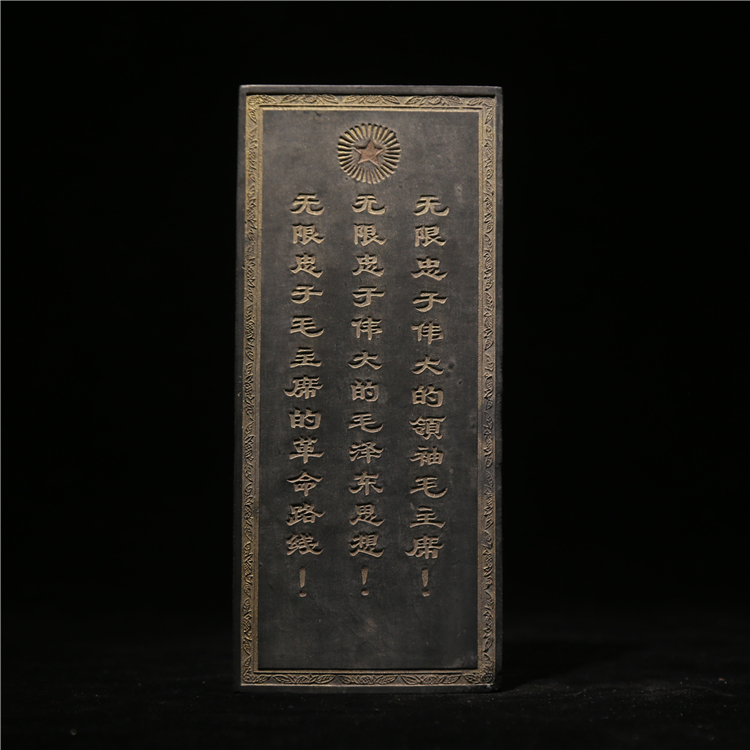 无限忠于伟大的領袖毛主席！
无限忠于伟大的毛泽东思想！
无限忠于毛主席的革命路线！